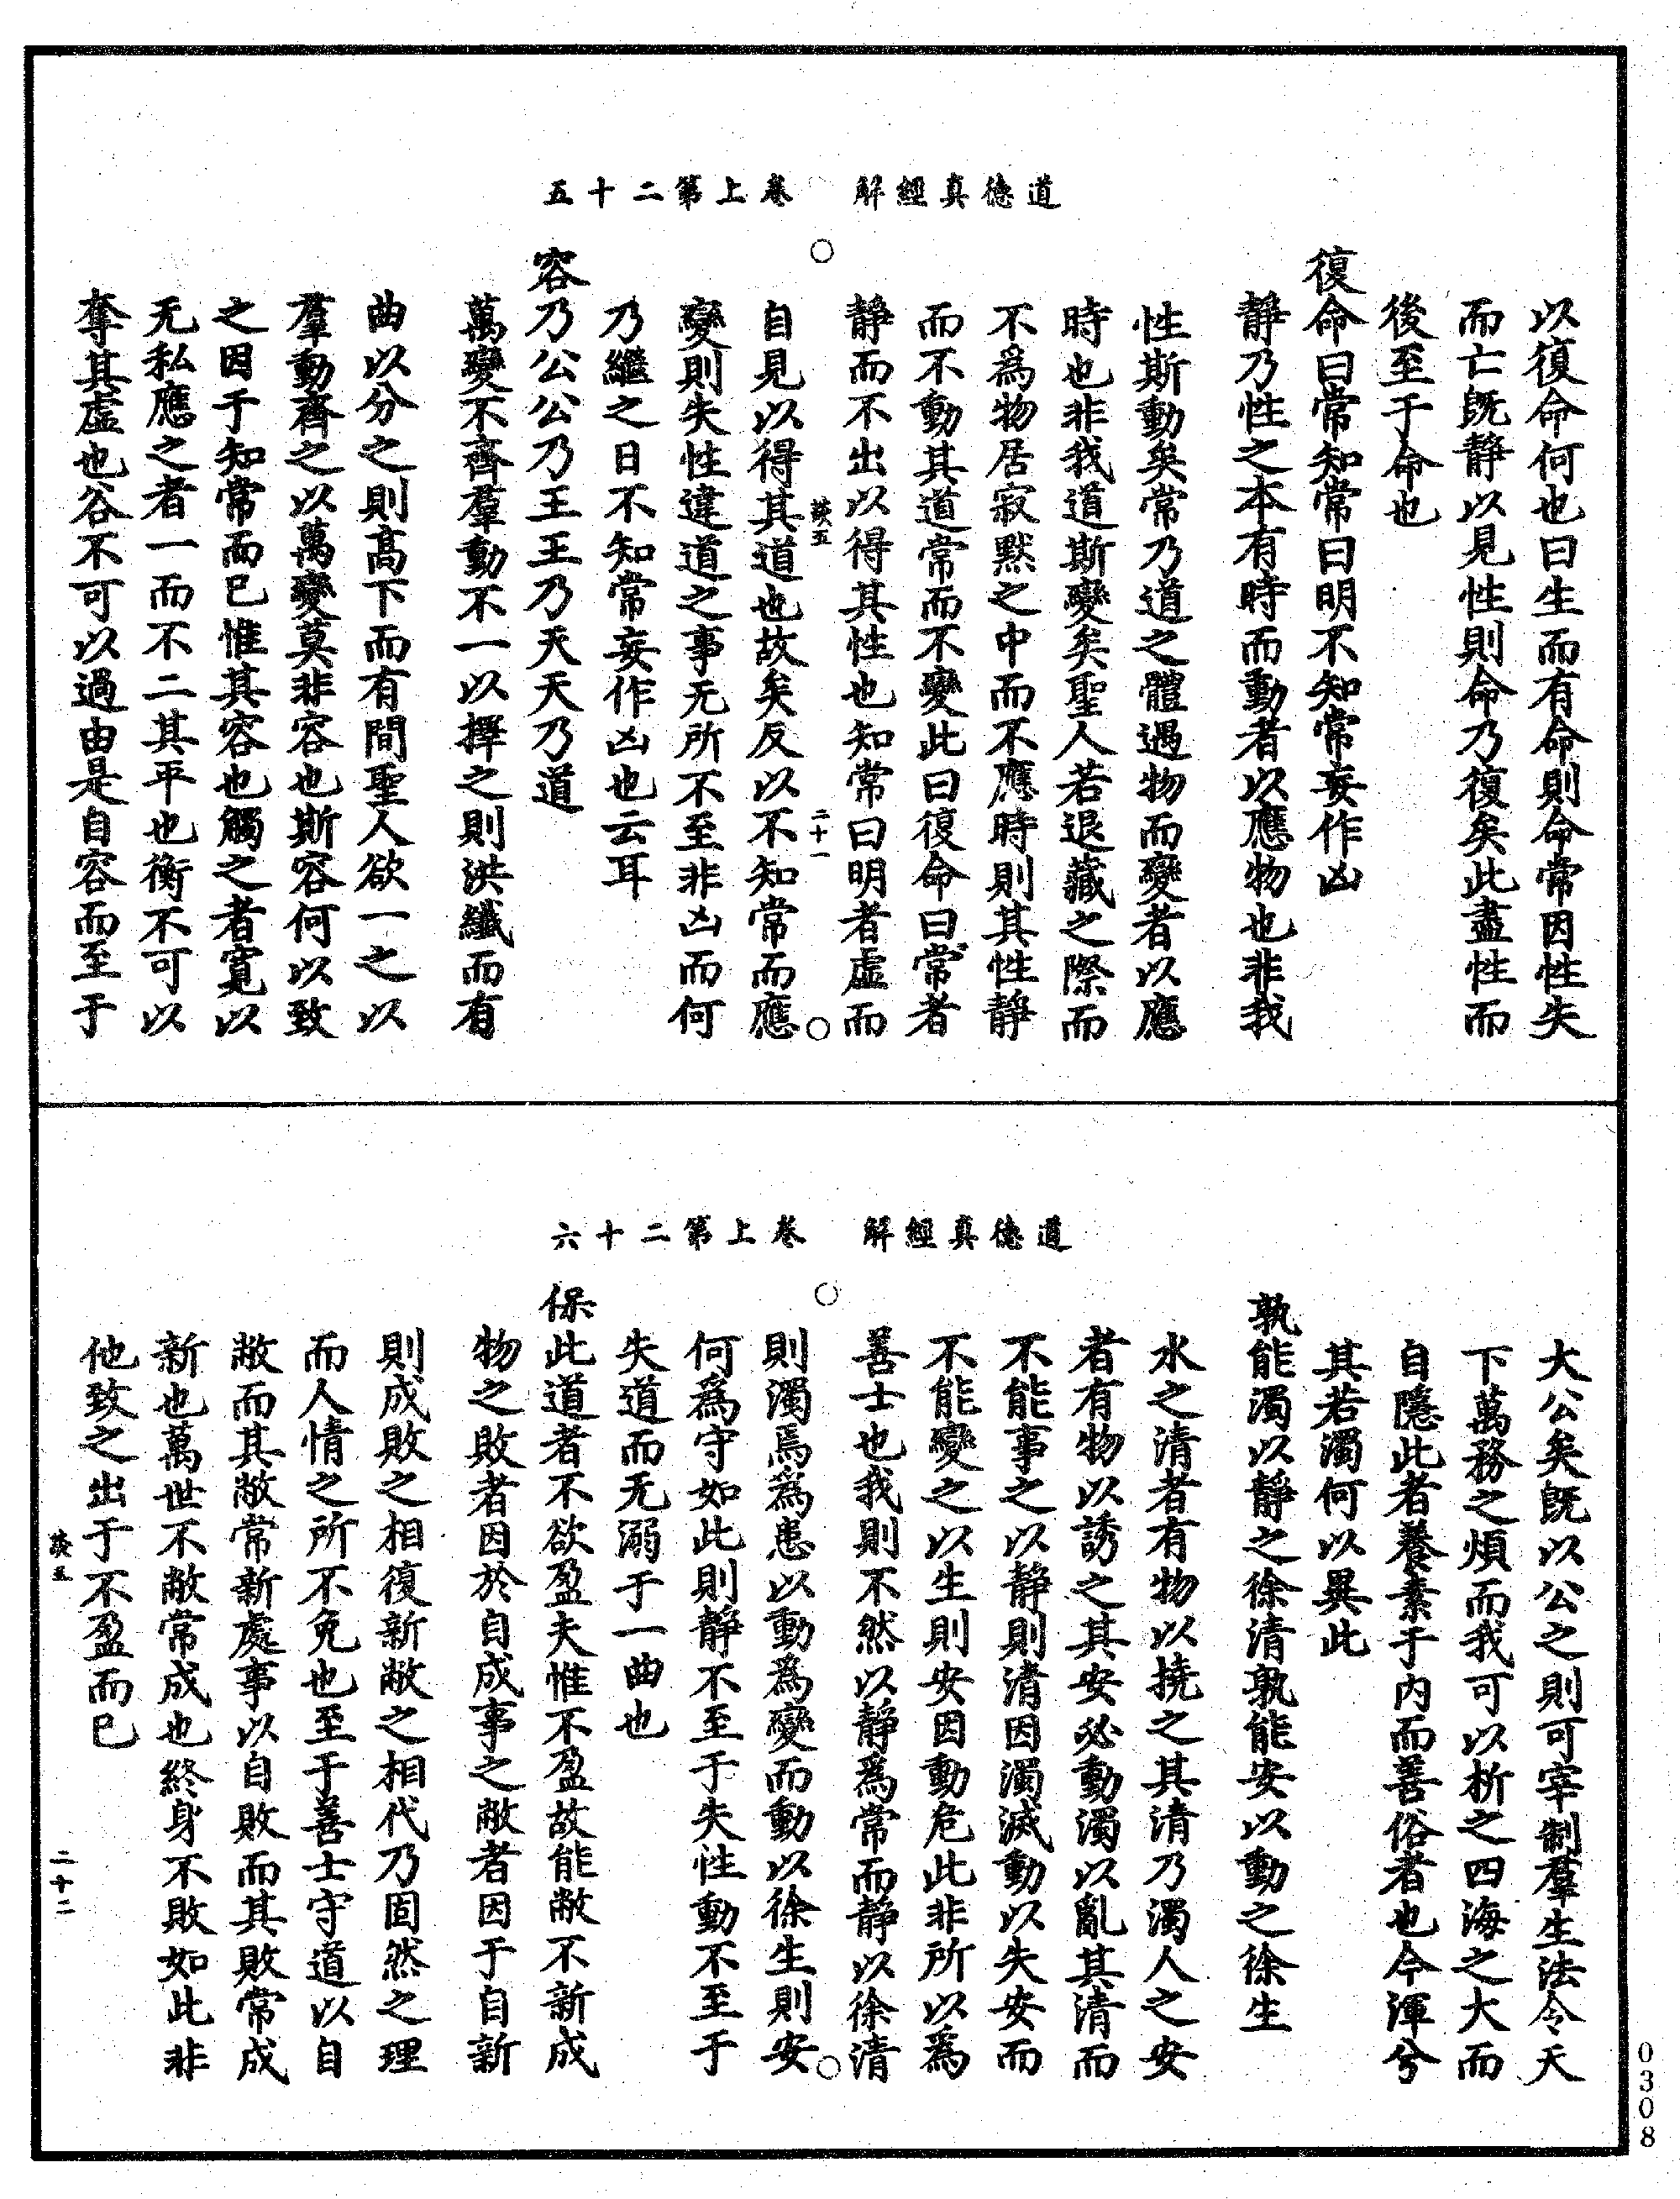 道德真經解　卷上第二十五
以復命何也曰生而有命則命常因性失
而亡旣靜以見性則命乃復矣此盡性而
後至于命也
復命曰常知常曰明不知常妄作凶
靜乃性之本有時而動者以應物也非我
性斯動矣常乃道之體遇物而變者以應
時也非我道斯變矣聖人若退藏之際而
不爲物居寂默之中而不應時則其性靜
而不動其道常而不變此曰復命曰常者
靜而不出以得其性也知常曰明者虛而
談五　二十一
自見以得其道也故矣反以不知常而應
變則失性違道之事无所不至非凶而何
乃繼之曰不知常妄作凶也云耳
容乃公公乃王王乃天天乃道
萬變不齊羣動不一以擇之則洪纖而有
曲以分之則高下而有間聖人欲一之以
羣動齊之以萬變莫非容也斯容何以致
之因于知常而已惟其容也觸之者寬以
无私應之者一而不二其平也衡不可以
奪其虛也谷不可以過由是自容而至于
道德真經解　卷上第二十六
大公矣旣以公之則可宰制羣生法令天
下萬務之煩而我可以析之四海之大而
自隱此者養素于內而善俗者也今渾兮
其若濁何以異此
孰能濁以靜之徐清孰能安以動之徐生
水之清者有物以撓之其清乃濁人之安
者有物以誘之其安必動濁以亂其清而
不能事之以靜則清因濁滅動以失安而
不能變之以生則安因動危此非所以爲
善士也我則不然以靜爲常而靜以徐清
則濁焉爲患以動爲變而動以徐生則安
何爲守如此則靜不至于失性動不至于
失道而无溺于一曲也
保此道者不欲盈夫惟不盈故能敝不新成
物之敗者因於自成事之敝者因于自新
則成敗之相復新敝之相代乃固然之理
而人情之所不免也至于善士守道以自
敝而其敝常新處事以自敗而其敗常成
新也萬世不敝常成也終身不敗如此非
他致之出于不盈而已
談五　二十二
0308